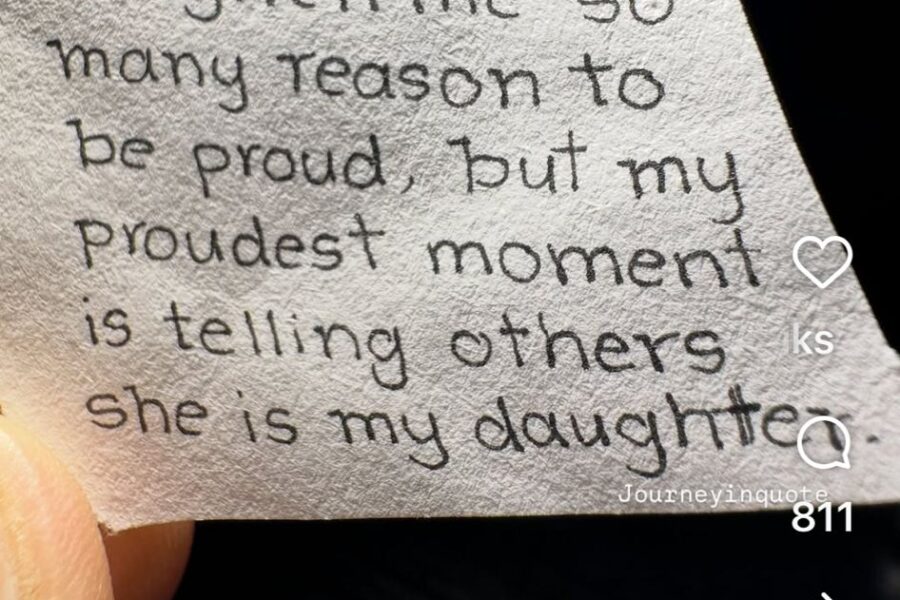 given me so
many reason to
be proud, but my
proudest moment
is telling others
ks
she is my daughter.
Journeyinquote
811